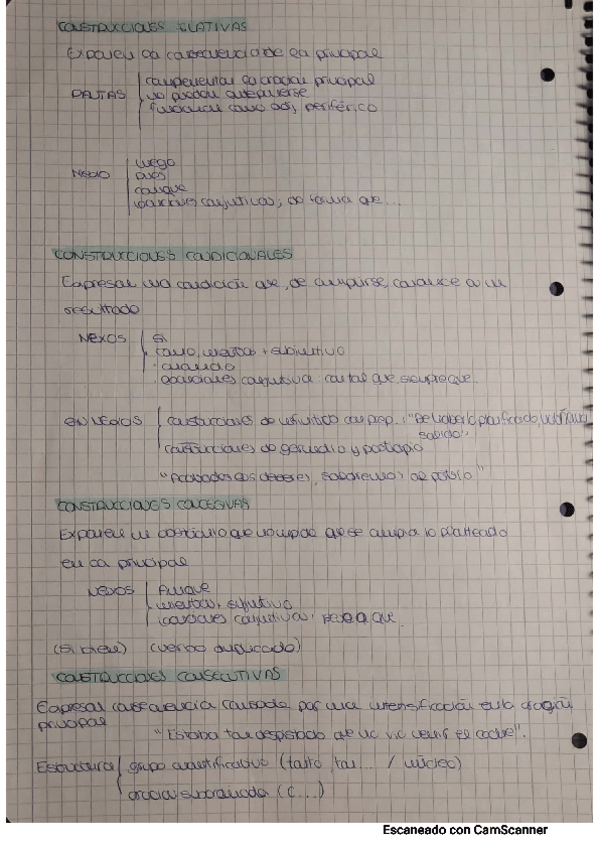 CONSTRUCCIONES ILATIVAS
Exponen la consecuencia de la principal
PAUTAS complementan la oración principal
no pueden anteponerse
funcionan como adj. periférico
NEXO luego
pues
conque
locuciones conjuntivas; de forma que...
CONSTRUCCIONES CONDICIONALES
Expresan una condición que, de cumplirse, conduce a un
resultado
NEXOS si
como, mientras + subjuntivo
cuando
locuciones conjuntiva: con tal que, siempre que.
SIN NEXOS construcciones de infinitivo con prep.: "De haberlo planificado,
sabido"
construcciones de gerundio y participio
"Acabados los deberes, saldremos al patio"
CONSTRUCCIONES CONCESIVAS
Exponen un obstáculo que no impide que se cumpla lo planteado
en la principal
NEXOS Aunque
mientras, subjuntivo
locuciones conjuntivas, pese a que
(si bien) (verbo duplicado)
CONSTRUCCIONES CONSECUTIVAS
Expresan consecuencia causada por una intensificación en la oración
principal
"Estaba tan despistado que no vio venir el coche".
Estructura grupo cuantificativo (tanto, tan... / núcleo)
oración subordinada (C...)
Escaneado con CamScanner